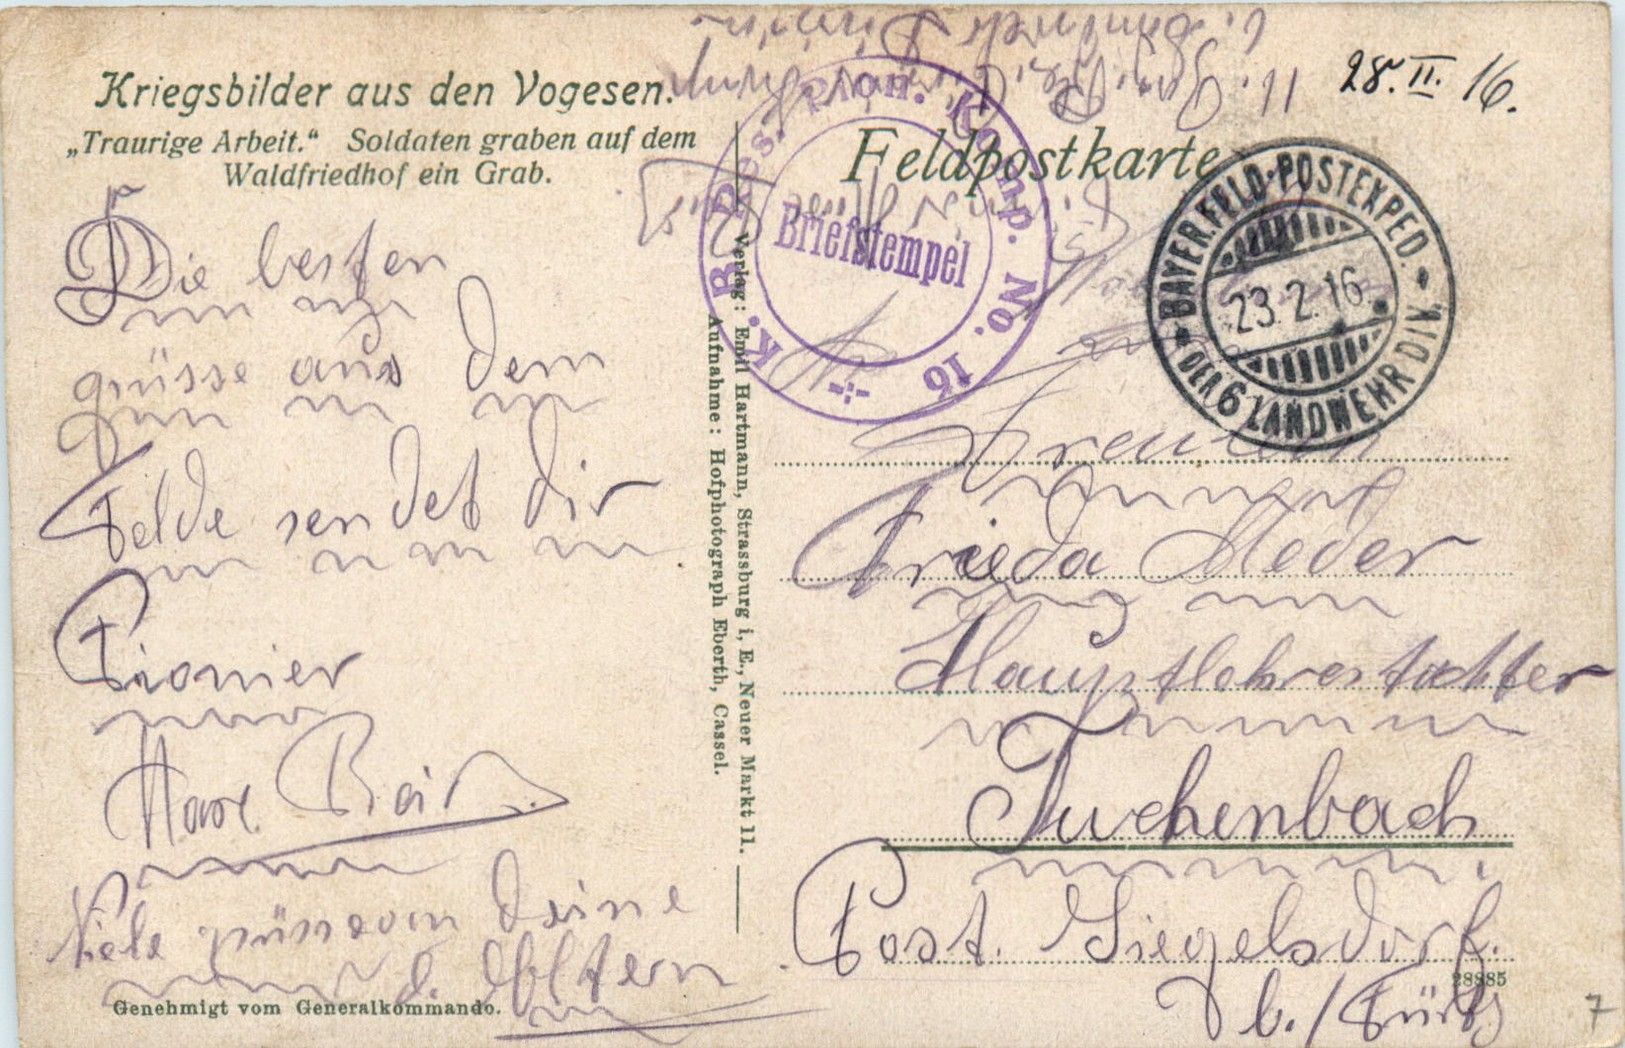 Kriegsbilder aus den Vogesen.
„Traurige Arbeit.“ Soldaten graben auf dem
Waldfriedhof ein Grab.
28. II. 16.
Feldpostkarte
K. B. Res. Pion. Komp. No. 16
Briefstempel
BAYER. FELD-POSTEXPED.
23.2.16.
DER 6 LANDWEHR DIV.
Die besten
grüsse aus dem
Felde sendet dir
Pionier
Max Bär
Viele grüsse von deine
Eltern
Genehmigt vom Generalkommando.
Verlag: Emil Hartmann, Strassburg i. E., Neuer Markt 11.
Aufnahme: Hofphotograph Eberth, Cassel.
Freulein
Frieda Meder
Hauptlehrestochter
Tuchenbach
Post. Siegelsdorf.
b./Fürth
28885
7